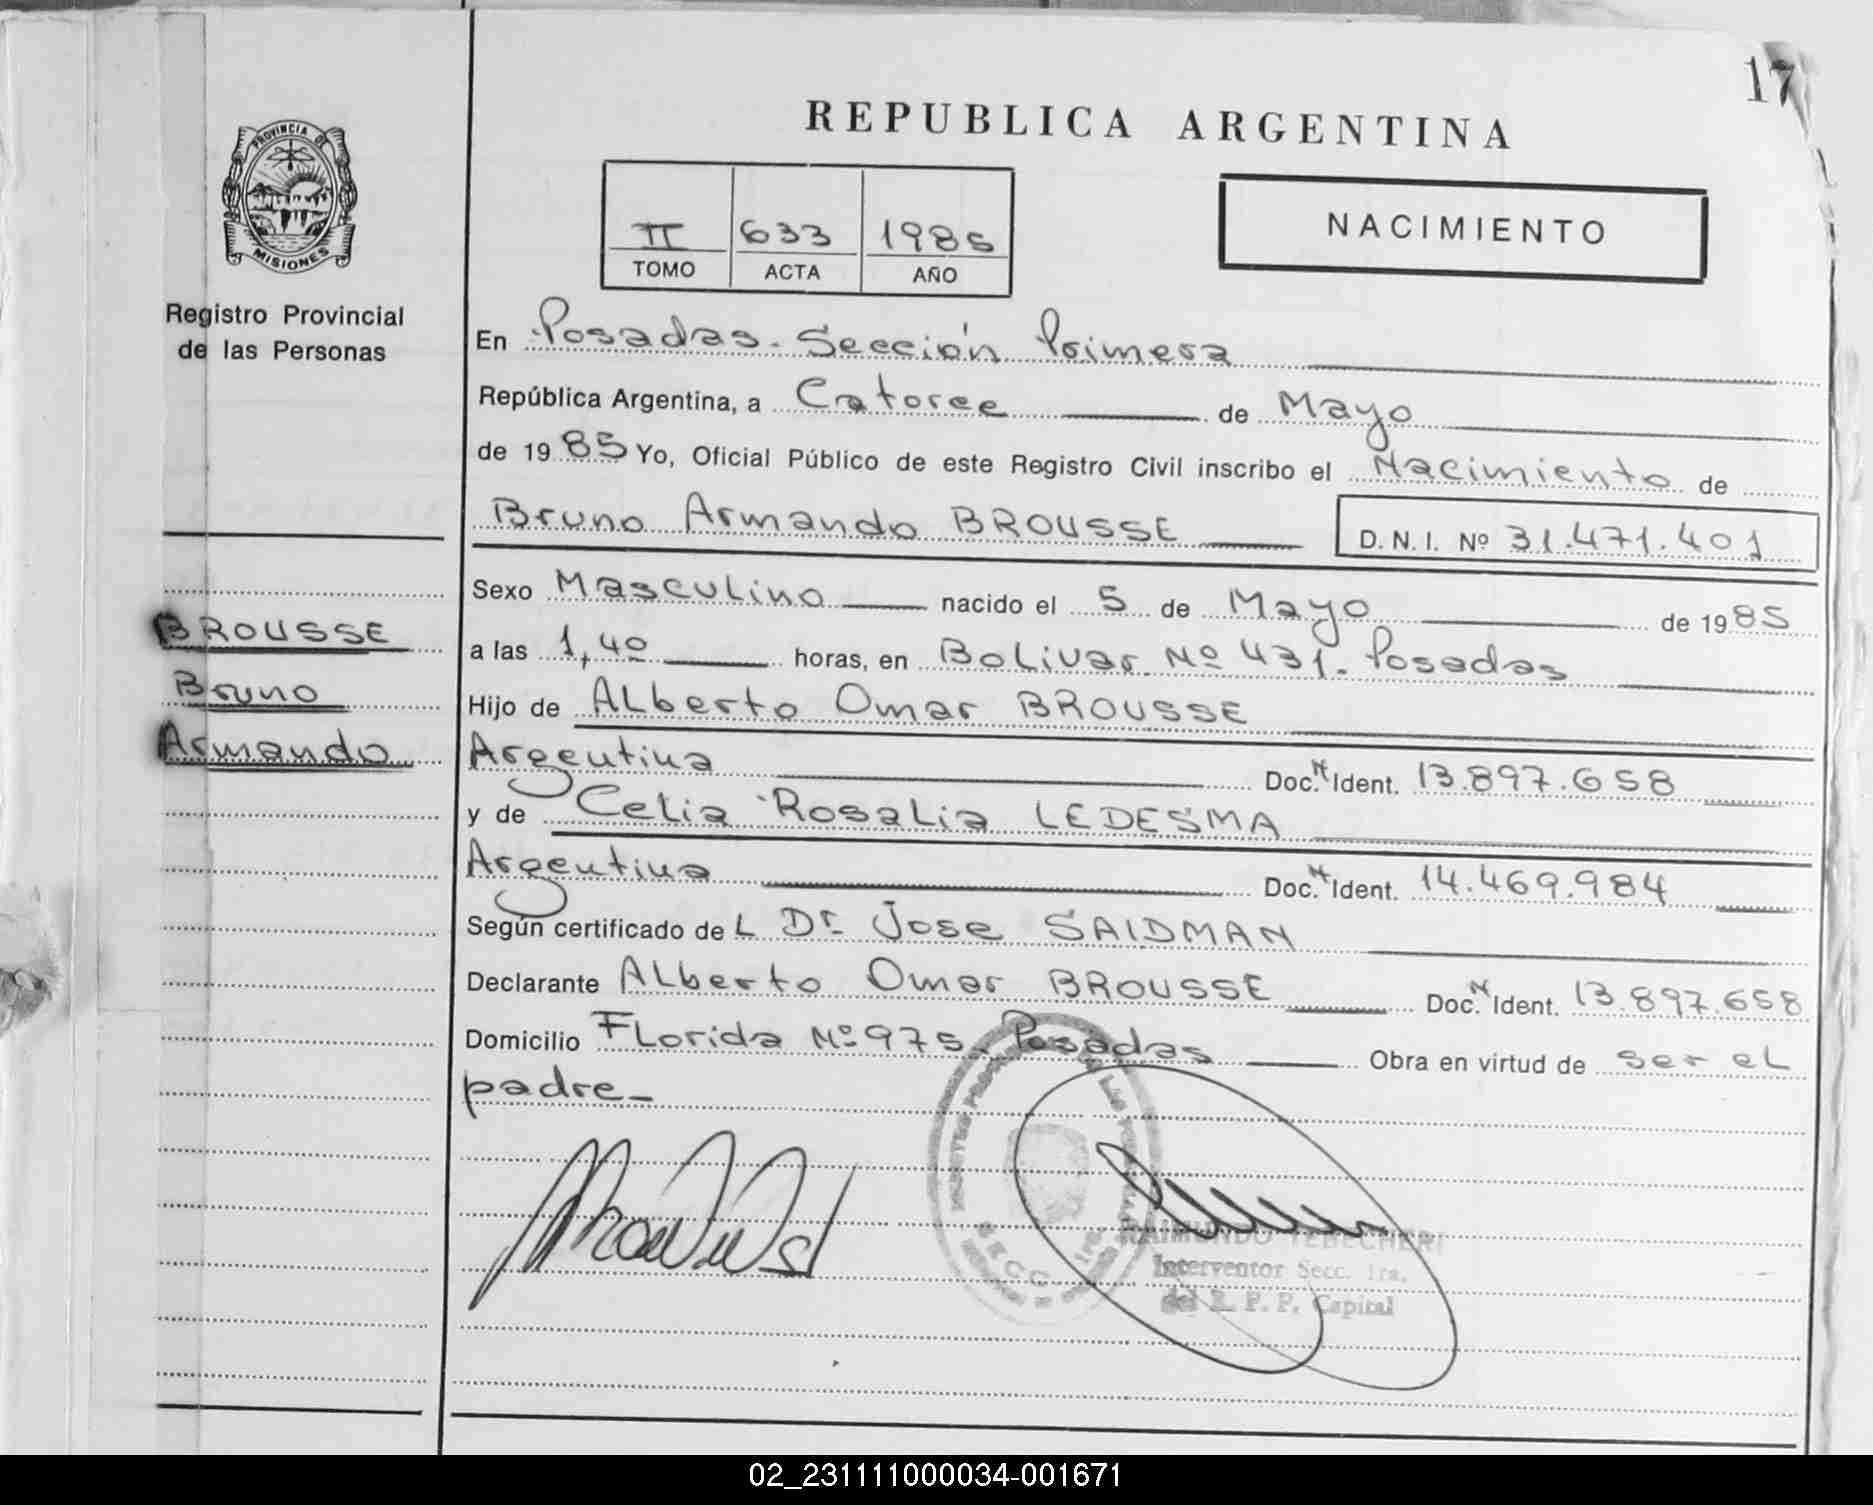 17
REPUBLICA ARGENTINA
PROVINCIA DE
MISIONES
Registro Provincial
de las Personas
II 633 1985
TOMO ACTA AÑO
NACIMIENTO
En Posadas. Sección Primera
República Argentina, a Catorce de Mayo
de 1985 Yo, Oficial Público de este Registro Civil inscribo el Nacimiento de
Bruno Armando BROUSSE D. N. I. Nº 31.471.401
Sexo Masculino nacido el 5 de Mayo de 1985
BROUSSE
Bruno
Armando
a las 1,40 horas, en Bolivar Nº 431. Posadas
Hijo de Alberto Omar BROUSSE
Argentina Doc. N Ident. 13.897.658
y de Celia Rosalia LEDESMA
Argentina Doc. N Ident. 14.469.984
Según certificado de L Dr. Jose SAIDMAN
Declarante Alberto Omar BROUSSE Doc. N Ident. 13.897.658
Domicilio Florida Nº 975. Posadas Obra en virtud de ser el
padre_
SECC. 1ra.
RAIMUNDO TEBECHERI
Interventor Secc. 1ra.
del R. P. P. Capital
02_231111000034-001671